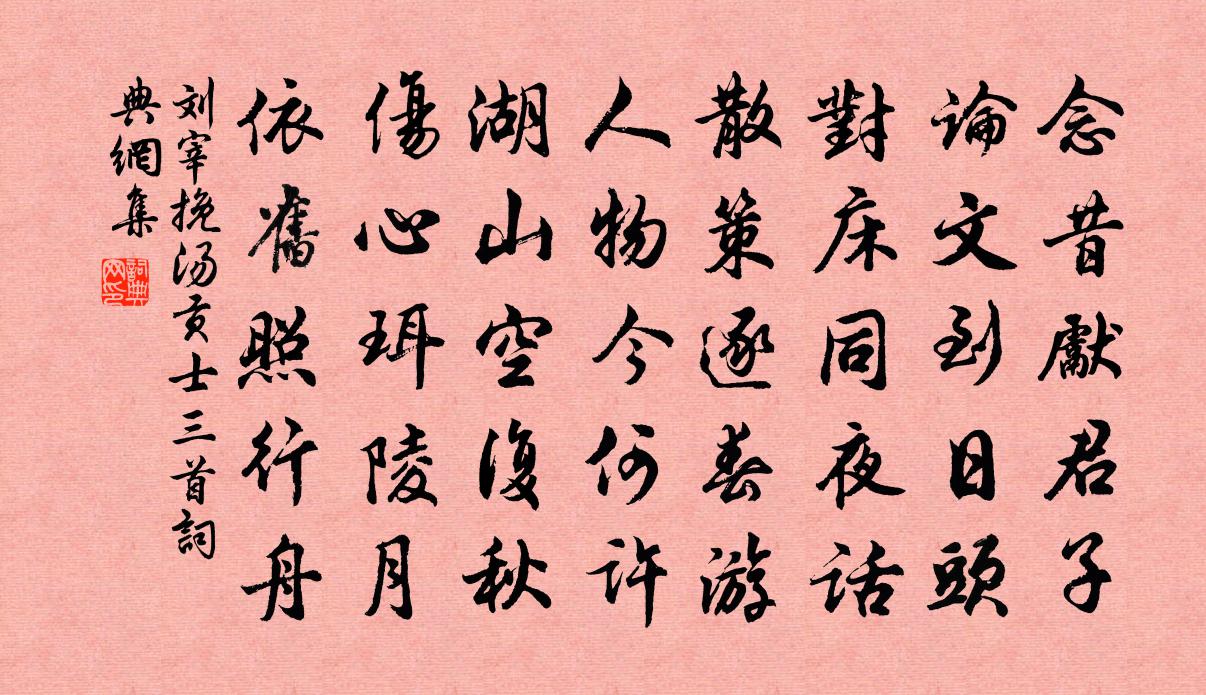 念昔獻君子
論文到日頭
對床同夜話
散策逐春游
人物今何許
湖山空復秋
傷心珥陵月
依舊照行舟
刘宰挽汤贡士三首詞
典網集
詞典
网印